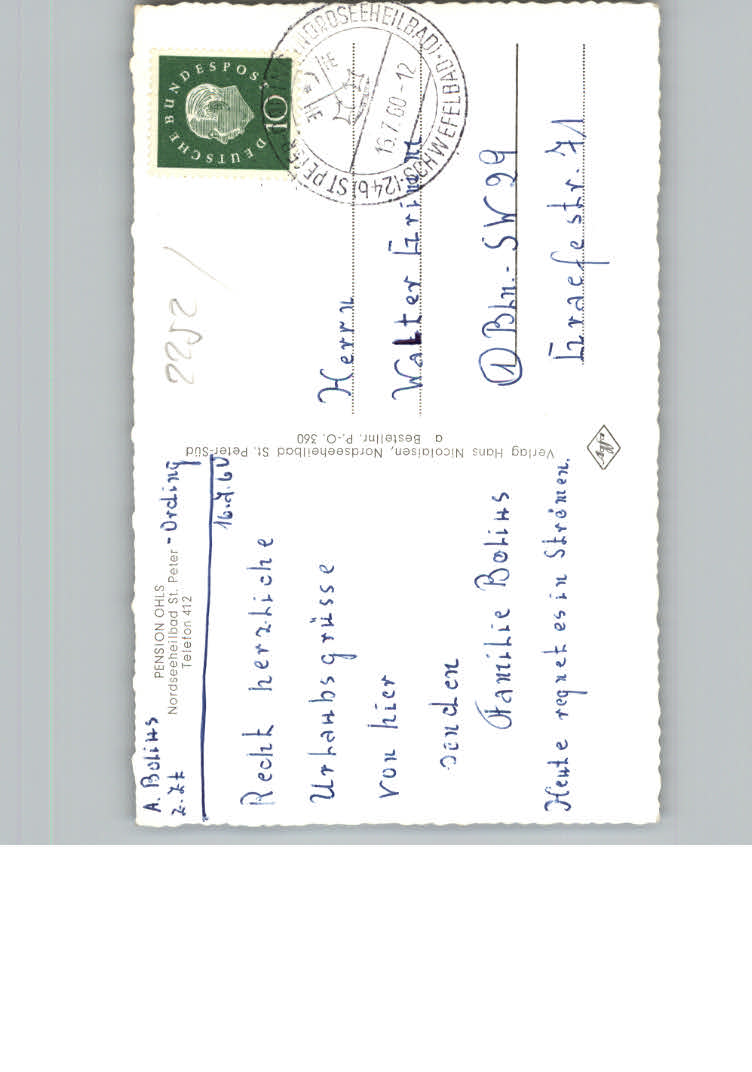 A. Bolius
z. Zt
PENSION OHLS
Nordseeheilbad St. Peter - Ording
Telefon 412
16.7.60
Recht herzliche
Urlaubsgrüsse
von hier
senden
Familie Bolius
Heute regnet es in Strömen.
Verlag Hans Nicolaisen, Nordseeheilbad St. Peter-Süd
a Bestellnr. P.-O. 360
Agfa
2252 /
DEUTSCHE BUNDESPOST
10
(24b) ST PETER
(NORDSEEHEILBAD) · SCHWEFELBAD
16.7.60-12
Herrn
Walter Grimont
① Bln.- SW 29
Graefestr. 71